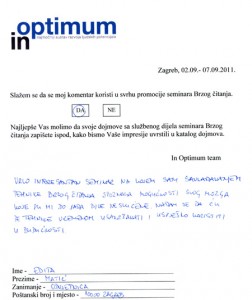 in optimum
Zagreb, 02.09.- 07.09.2011.
Slažem se da se moj komentar koristi u svrhu promocije seminara Brzog čitanja.
DA NE
Najljepše Vas molimo da svoje dojmove sa službenog dijela seminara Brzog
čitanja zapišete ispod, kako bismo Vaše impresije uvrstili u katalog dojmova.
In Optimum team
VRLO INTERESANTAN SEMINAR NA KOJEM SAM SAVLADAVANJEM
TEHNIKE BRZOG ČITANJA SPOZNALA MOGUĆNOSTI SVOG MOZGA
KOJE SU MI DO SADA BILE NESLUĆENE. NADAM SE DA ĆU
TE TEHNIKE VREMENOM USAVRŠAVATI I USPJEŠNO KORISTITI
U BUDUĆNOSTI
Ime - EDITA
Prezime - MATIĆ
Zanimanje - ODVJETNICA
Poštanski broj i mjesto - NOVI ZAGREB